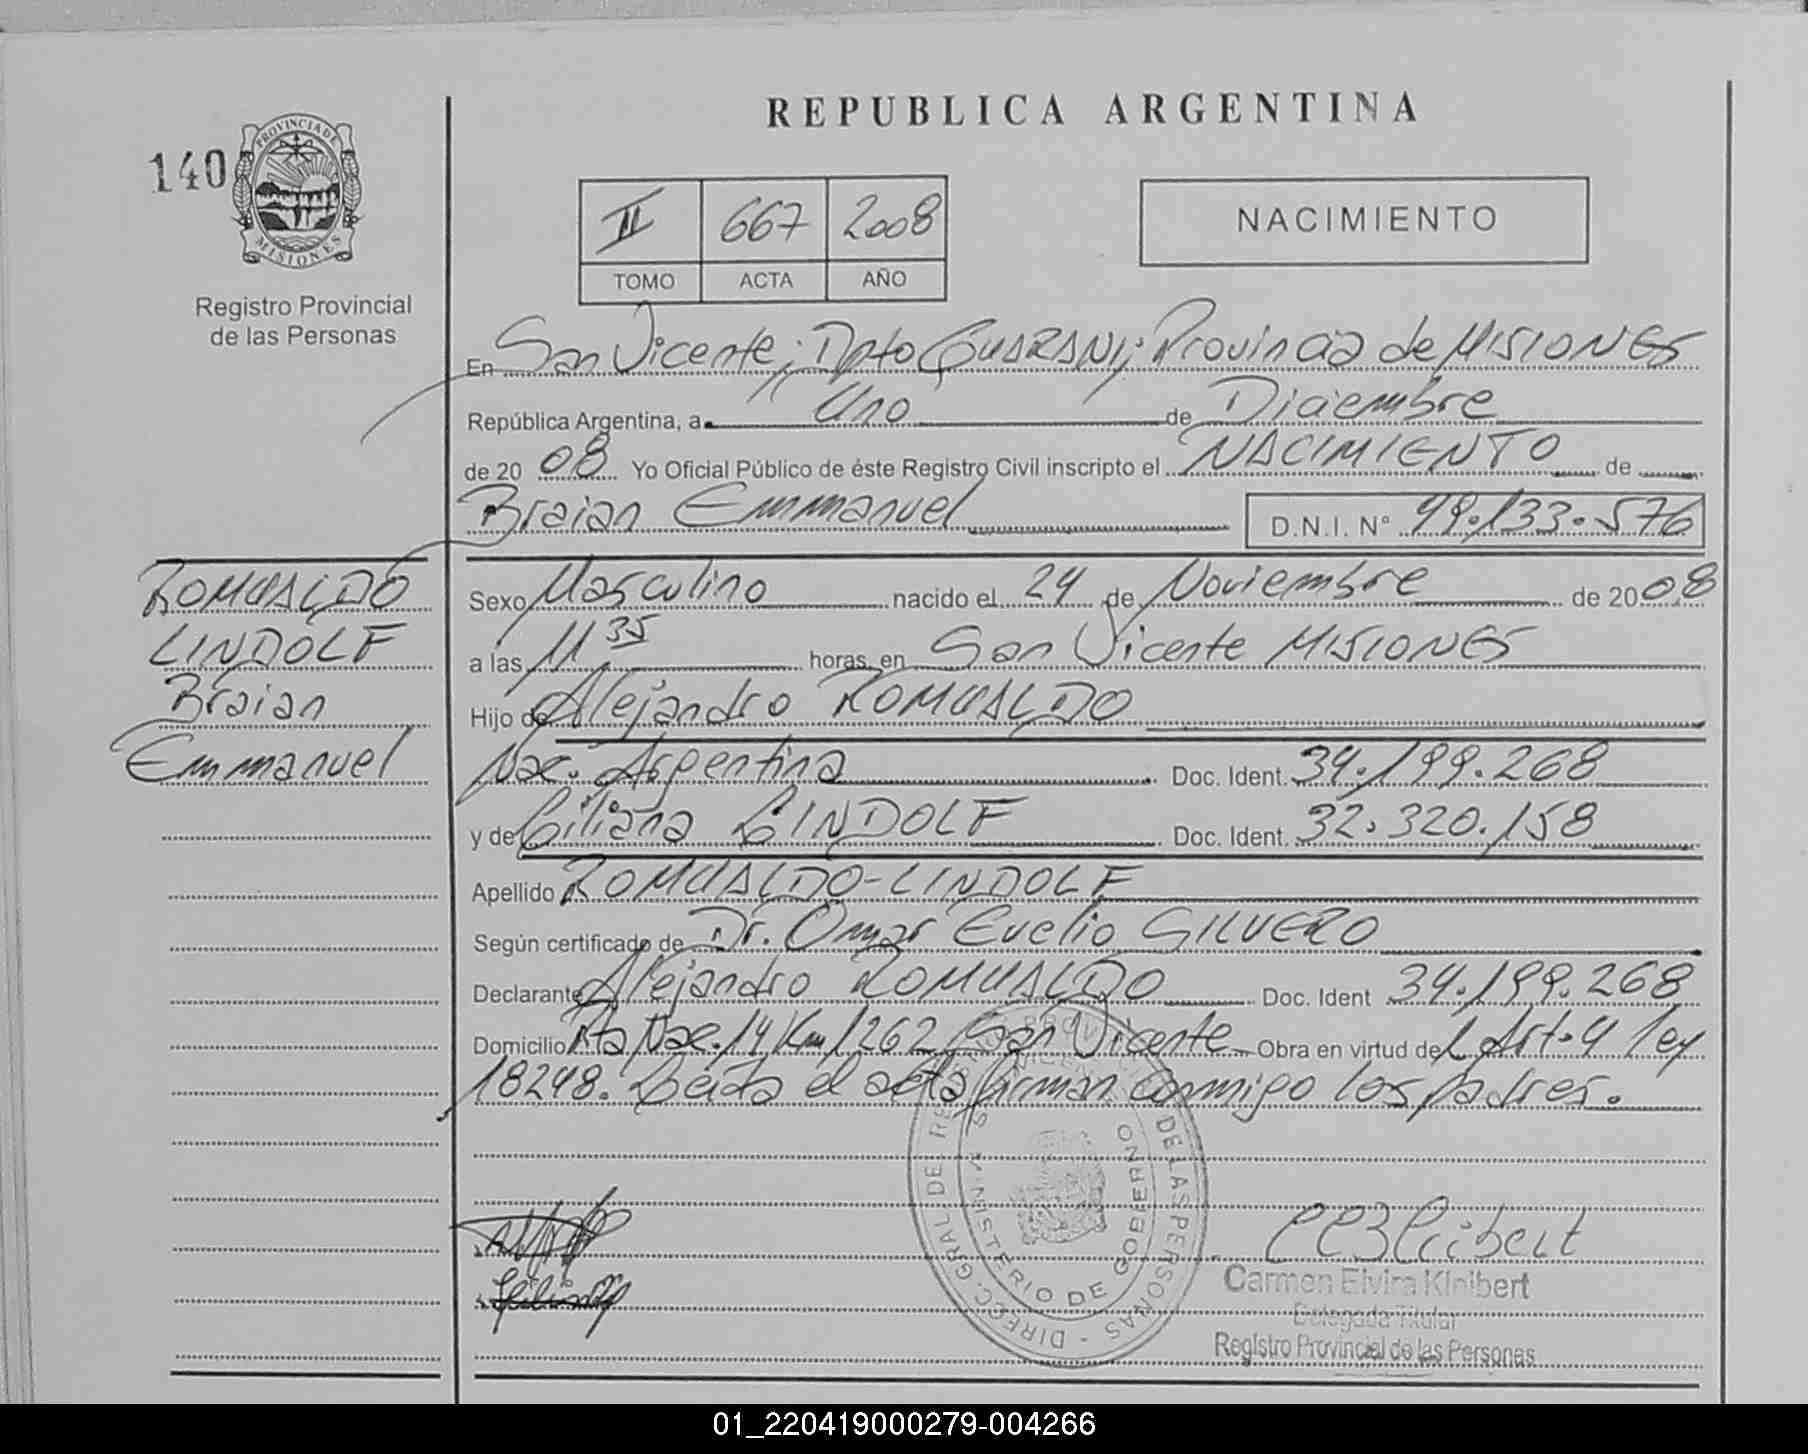 REPUBLICA ARGENTINA
140
PROVINCIA DE MISIONES
Registro Provincial
de las Personas
II 667 2008
TOMO ACTA AÑO
NACIMIENTO
En San Vicente; Dpto GUARANI; Provincia de MISIONES
República Argentina, a Uno de Diciembre
de 20 08 Yo Oficial Público de éste Registro Civil inscripto el NACIMIENTO de
Braian Emmanuel D.N.I. Nº 99.133.576
ROMUALDO
LINDOLF
Braian
Emmanuel
Sexo Masculino nacido el 24 de Noviembre de 20 08
a las 11 35 horas, en San Vicente MISIONES
Hijo de Alejandro ROMUALDO
Nac. Argentina Doc. Ident. 34.199.268
y de Liliana LINDOLF Doc. Ident. 32.320.158
Apellido ROMUALDO-LINDOLF
Según certificado de Dr. Omar Evelio SILVERO
Declarante Alejandro ROMUALDO Doc. Ident 34.199.268
Domicilio Rta Nac. 14 Km 1262 San Vicente Obra en virtud del Art. 4 ley
18248. Leida el acta firman conmigo los padres.
DIRECC. GRAL. DE DE LAS PERSONAS
MINISTERIO DE GOBERNO
Carmen Elvira Klnibert
Delegada Titular
Registro Provincial de las Personas
01_220419000279-004266